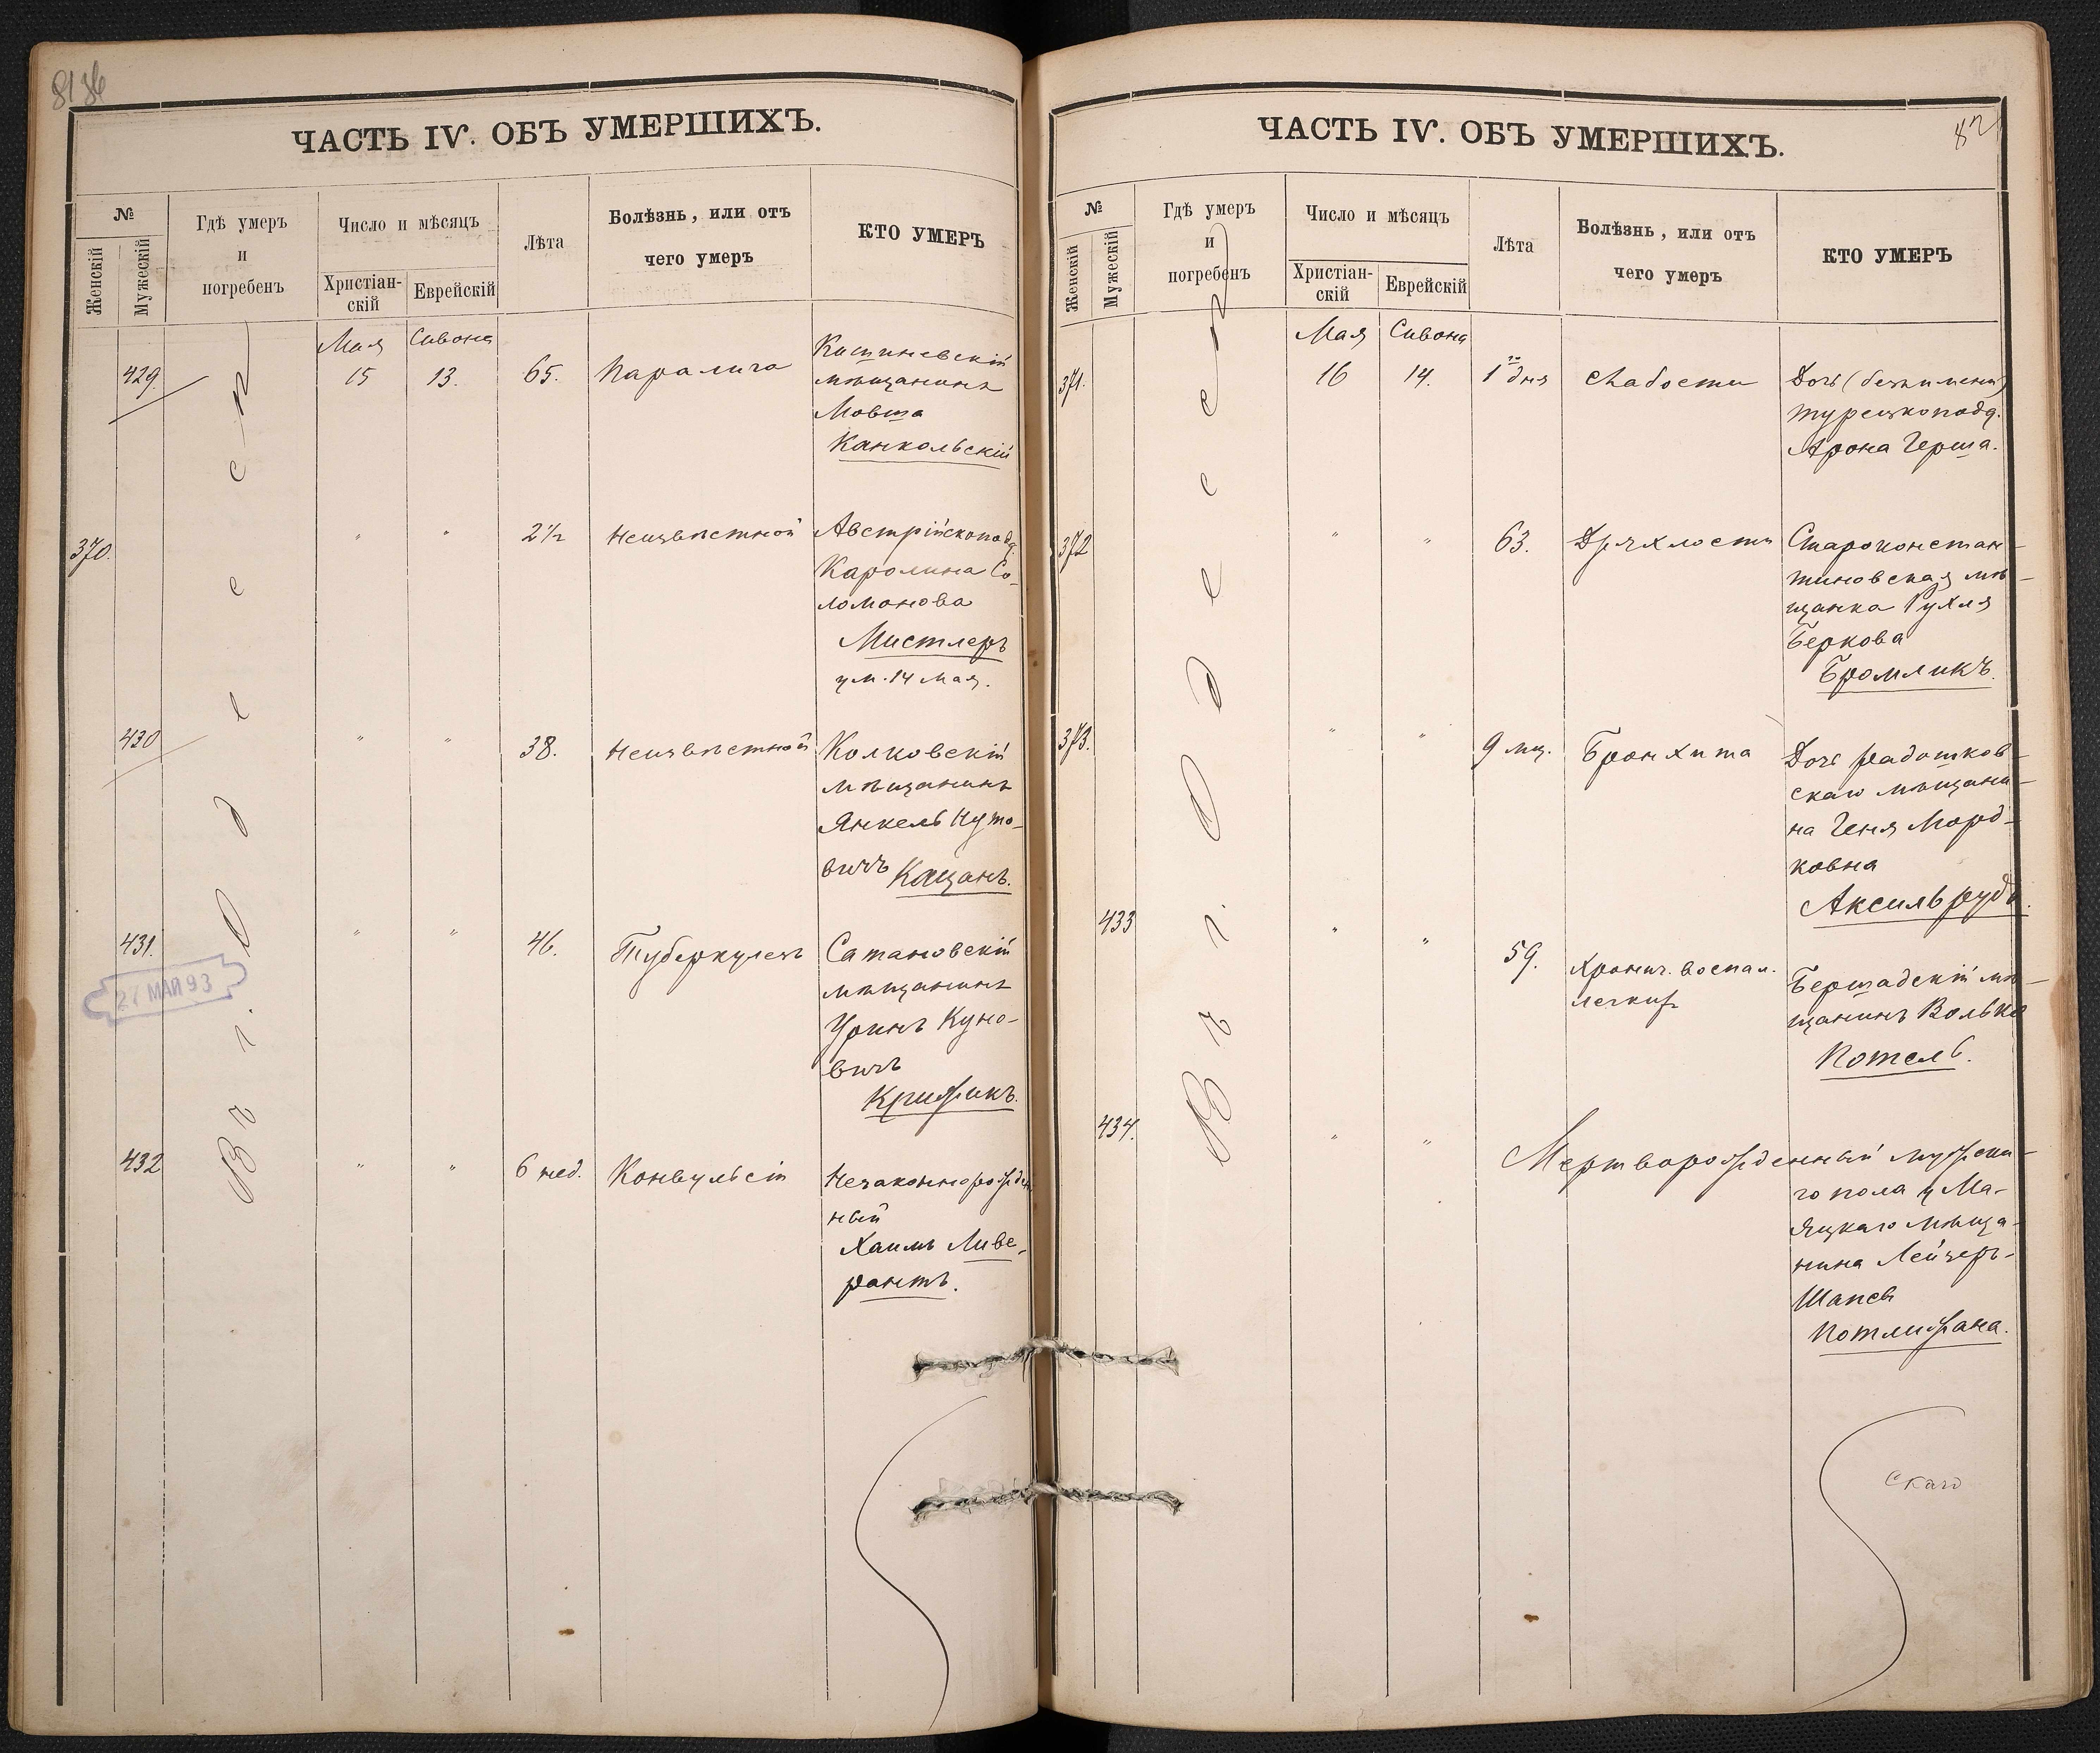 ЧАСТЬ IV. ОБЪ УМЕРШИХЪ.
№
Женскій
Мужескій
Гдѣ умеръ
и
погребенъ
Число и мѣсяцъ
Христіан-
скій
Еврейскій
Лѣта
Болѣзнь, или отъ
чего умеръ
КТО УМЕРЪ
Въ г. Одессѣ
Мая Сивона
429. 15 13. 65. Паралича
Кишиневскій
мѣщанинъ
Мовша
Канкольскій
370. " " 2½ Неизвѣстной
Австрійскопод.
Каролина Со-
ломонова
Мистлеръ
ум. 14 мая.
430 " " 38. Неизвѣстной
Колковскій
мѣщанинъ
Янкель Нуто-
вичъ Кацанъ.
431. " " 46. Туберкулезъ
Сатановскій
мѣщанинъ
Уринъ Куно-
вичъ
Крижикъ.
27 МАЙ 93
432 " " 6 нед. Конвульсій
Незаконнорожден
ный
ХаимъЛиве-
рантъ.
82
ЧАСТЬ IV. ОБЪ УМЕРШИХЪ.
№
Женскій
Мужескій
Гдѣ умеръ
и
погребенъ
Число и мѣсяцъ
Христіан-
скій
Еврейскій
Лѣта
Болѣзнь, или отъ
чего умеръ
КТО УМЕРЪ
Въ г. Одессѣ
Мая Сивона
371. 16 14. 1 дня слабости
Дочь (безъ имени)
турецкопод.
Арона Герша.
372 " " 63. Дряхлости
Староконстан-
тиновская мѣ-
щанка Рухля
Беркова
Бромликъ.
373. " " 9 мц. Бронхита
Дочь радошков-
скаго мѣщани-
на Геня Морд-
ковна
Аксильрудъ.
433 " " 59. Хронич. воспал.
легкихъ
Бершадскій мѣ-
щанинъ Волько
Потель.
434. " " Мертворожденный мужска-
го пола у Ма-
яцкаго мѣща-
нина Лейзеръ-
Шапсы
Потлижана.
скаго